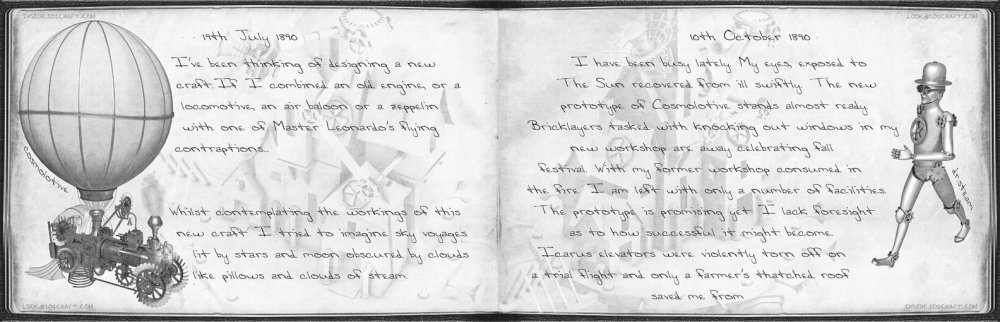 INSIDE.IDSCRAFT.COM
19th July 1890
I've been thinking of designing a new
craft. If I combined an old engine, or a
locomotive, an air baloon or a zeppelin
with one of Master Leonardo's flying
contraptions...
Whilst contemplating the workings of this
new craft I tried to imagine sky voyages
lit by stars and moon obscured by clouds
like pillows and clouds of steam.
cosmolotive
LOOK@IDSCRAFT.COM
LOOK@IDSCRAFT.COM
10th October 1890
I have been busy lately. My eyes, exposed to
The Sun recovered from ill swiftly. The new
prototype of Cosmolotive stands almost ready.
Bricklayers tasked with knocking out windows in my
new workshop are away celebrating fall
festival. With my former workshop consumed in
the fire I am left with only a number of facilities.
The prototype is promising yet I lack foresight
as to how successful it might become.
Icarus elevators were violently torn off on
a trial flight and only a farmer's thatched roof
saved me from
dr.steam
INSIDE.IDSCRAFT.COM